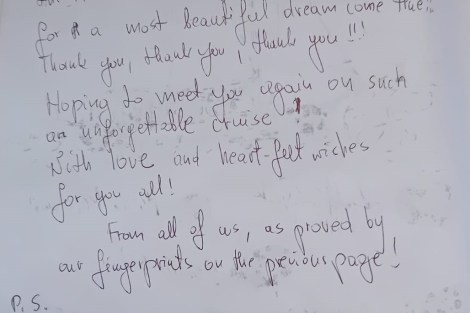 for a most beautiful dream come true..
Thank you, thank you, thank you !!!
Hoping to meet you again on such
an unforgettable cruise !
With love and heart-felt wiches
for you all!
From all of us, as proved by
our fingerprints on the previous page!
P.S.